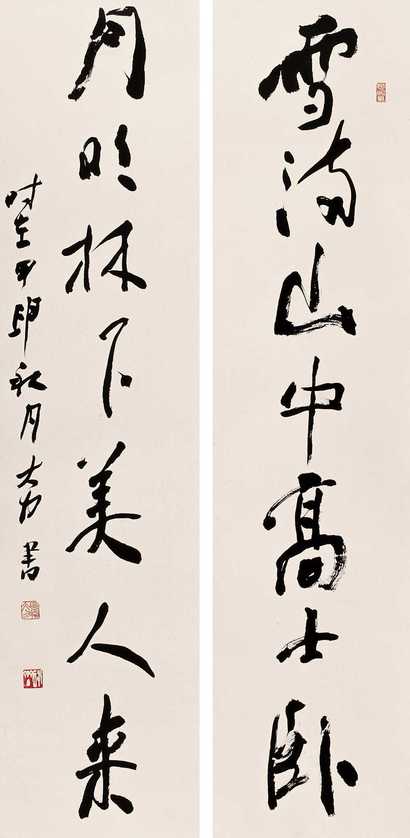 雪满山中高士卧
月明林下美人来
时在甲申秋月大力书